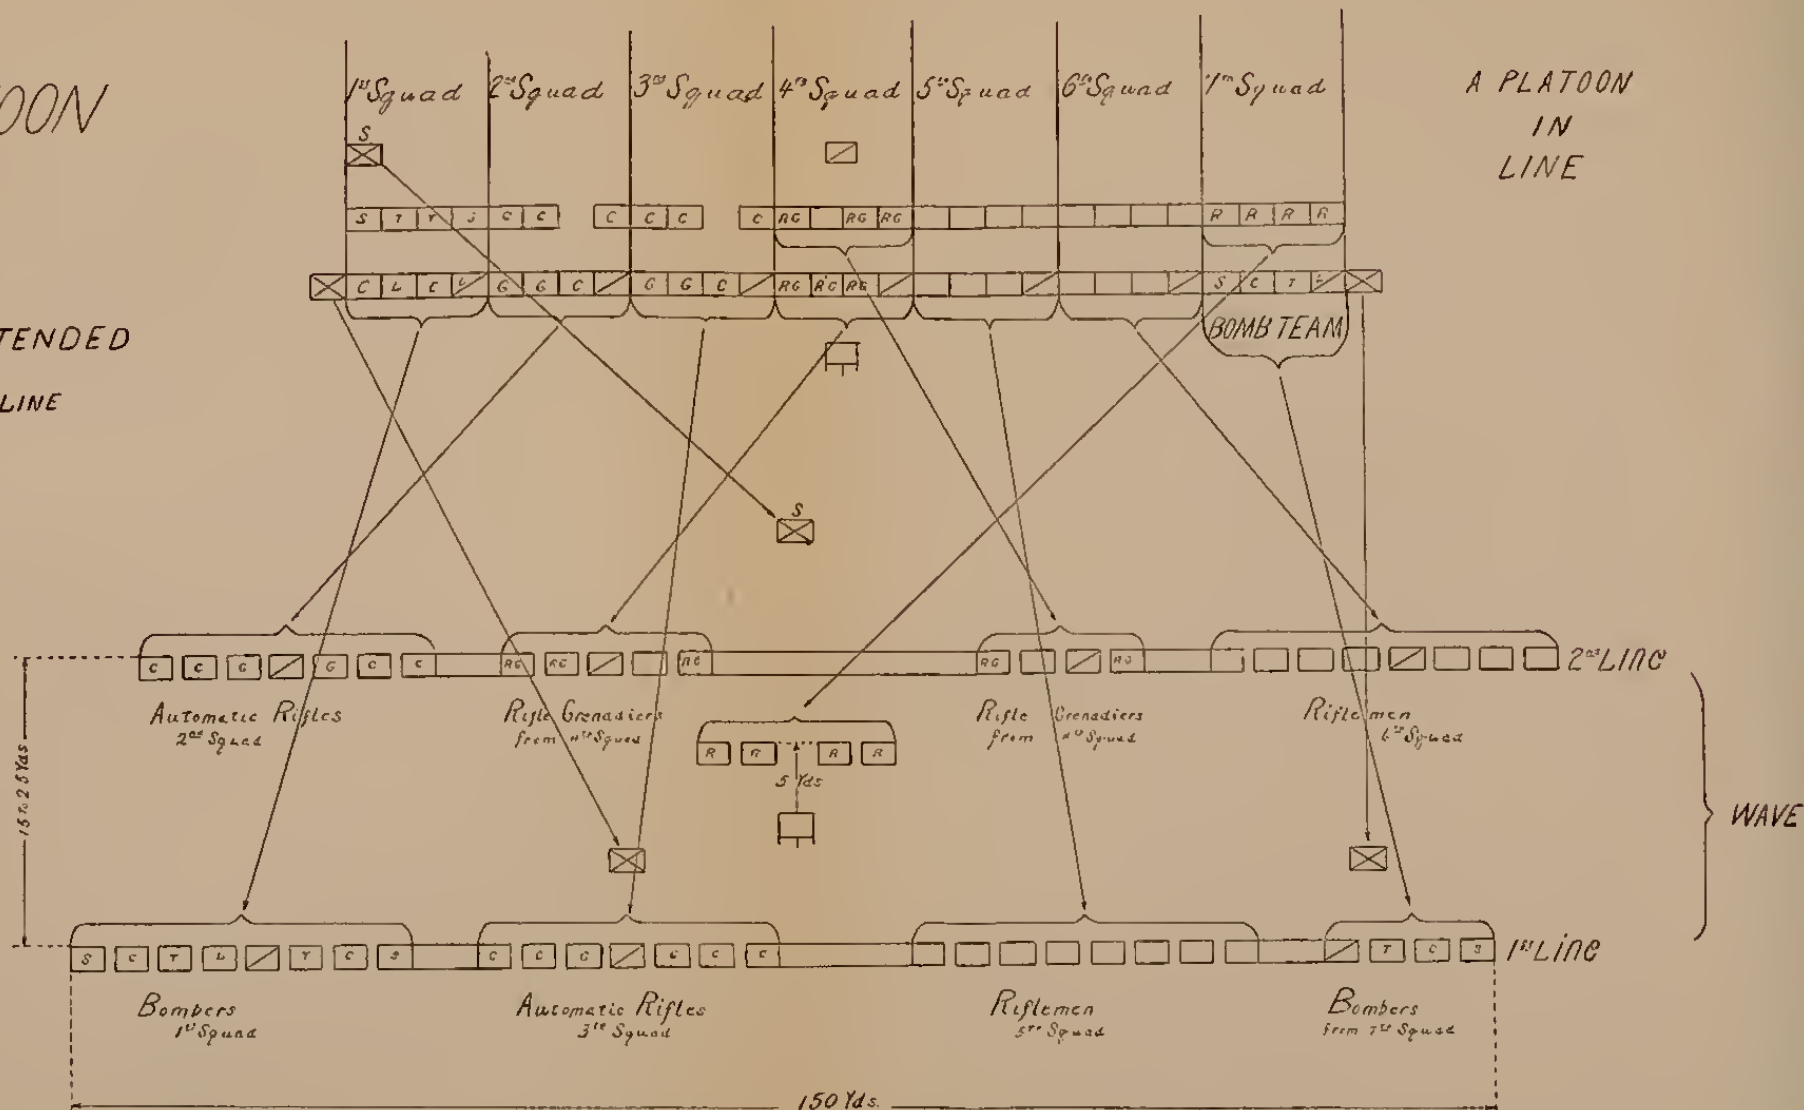 OON
TENDED
LINE
1st Squad 2nd Squad 3rd Squad 4th Squad 5th Squad 6th Squad 7th Squad
A PLATOON
IN
LINE
S
S T T S C C C C C C RG RG RG R R R R
C L C L G G C G G C RG RG RG S C T
BOMB TEAM
S
C C G G C C RG RG RG RG RG 2nd LINE
Automatic Rifles
2nd Squad
Rifle Grenadiers
from 4th Squad
Rifle Grenadiers
from 4th Squad
Riflemen
6th Squad
R R R R
5 Yds
15 to 25 Yds
WAVE
S C T L T C S C C G G C C T C S 1st LINE
Bombers
1st Squad
Automatic Rifles
3rd Squad
Riflemen
5th Squad
Bombers
from 7th Squad
150 Yds.